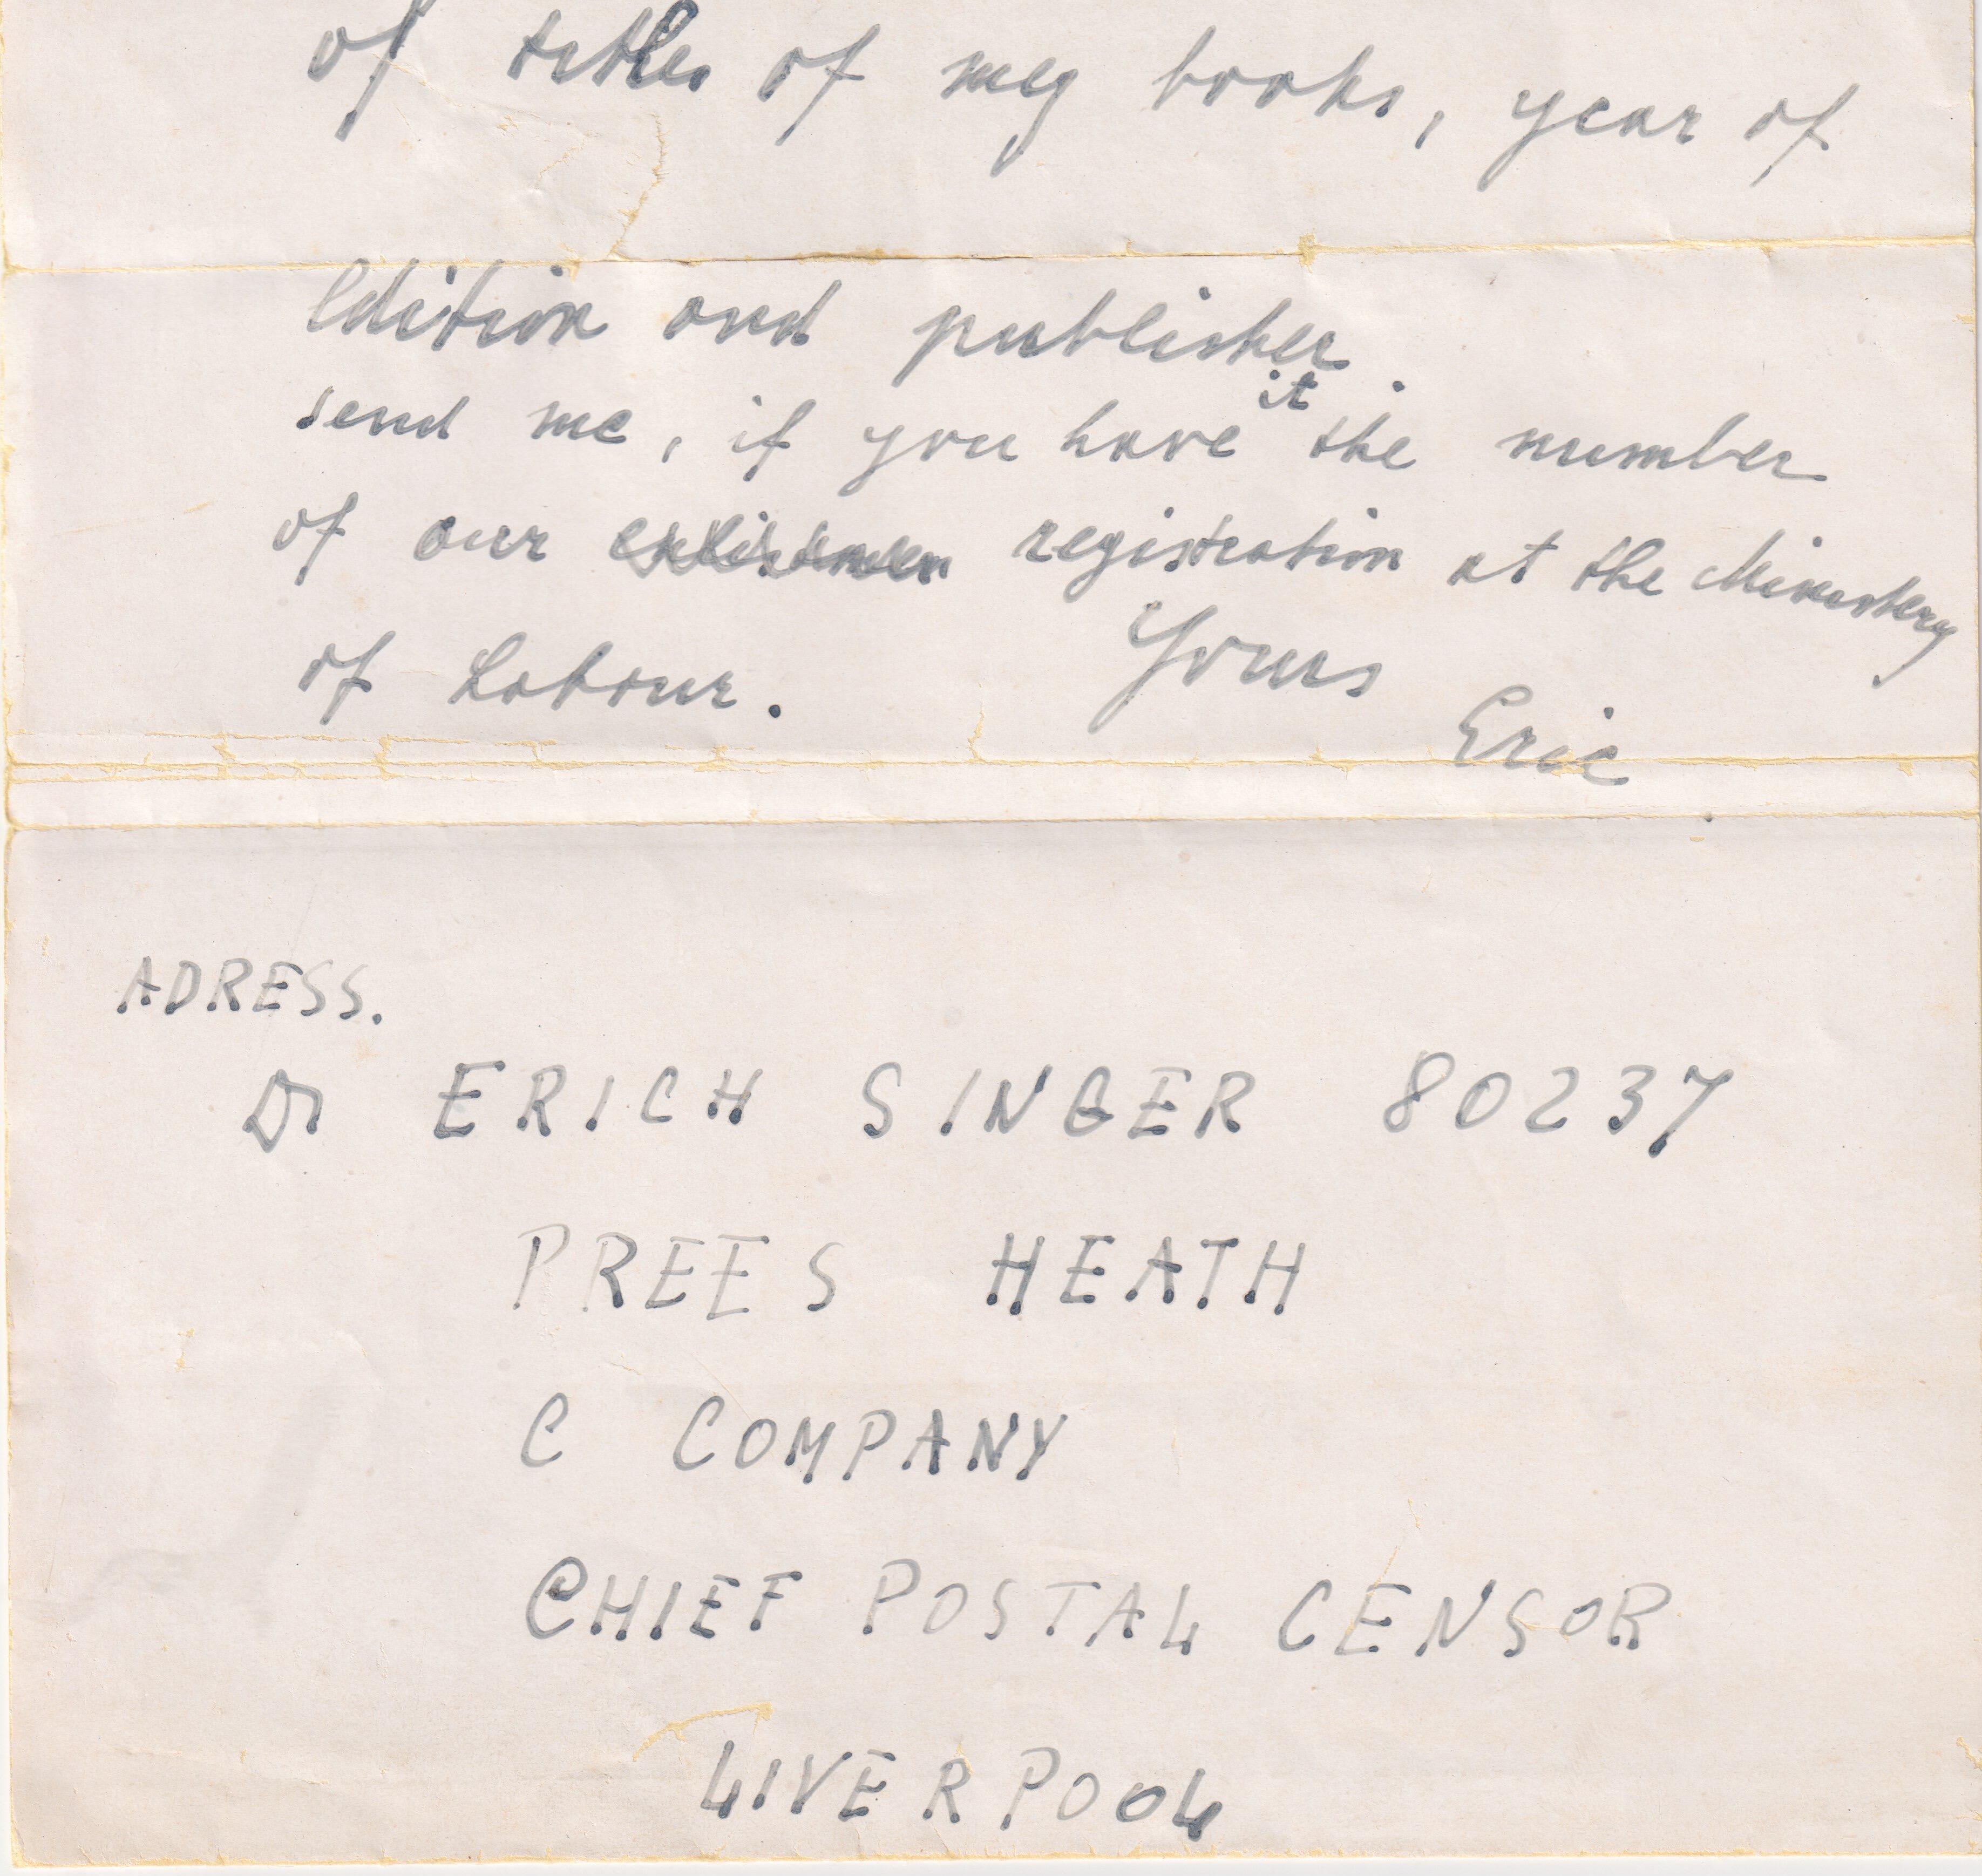 of titles of my books, year of
Edition and publisher.
send me, if you have it the number
of our registration at the Ministery
of Labour. Yours
Eric
ADRESS.
Dr ERICH SINGER 80237
PREES HEATH
C COMPANY
CHIEF POSTAL CENSOR
LIVERPOOL